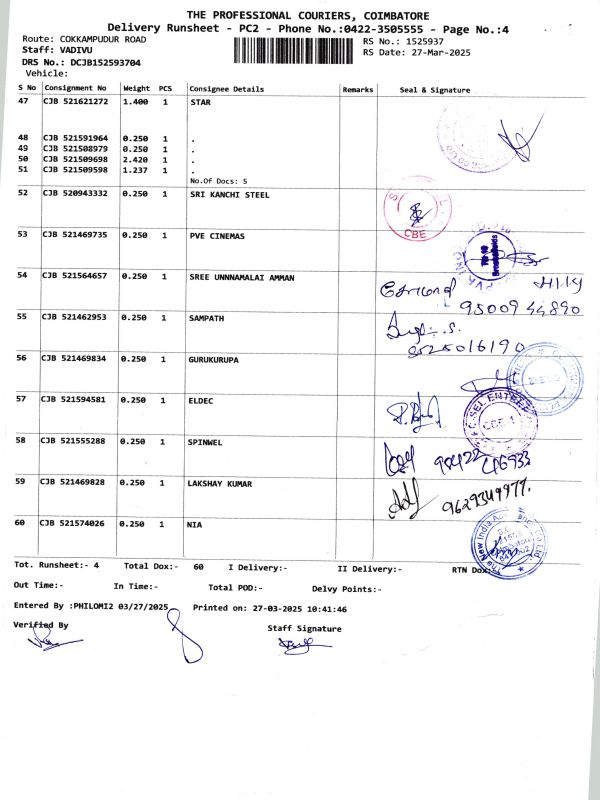 THE PROFESSIONAL COURIERS, COIMBATORE
Delivery Runsheet - PC2 - Phone No.:0422-3505555 - Page No.:4
Route: COKKAMPUDUR ROAD
RS No.: 1525937
Staff: VADIVU
RS Date: 27-Mar-2025
DRS No.: DCJB152593704
Vehicle:
S No Consignment No Weight PCS Consignee Details Remarks Seal & Signature
47 CJB 521621272 1.400 1 STAR
48 CJB 521591964 0.250 1 .
49 CJB 521508979 0.250 1 .
50 CJB 521509698 2.420 1 .
51 CJB 521509598 1.237 1 .
No.Of Docs: 5
52 CJB 520943332 0.250 1 SRI KANCHI STEEL
CBE
53 CJB 521469735 0.250 1 PVE CINEMAS
54 CJB 521564657 0.250 1 SREE UNNNAMALAI AMMAN
95009 44890
55 CJB 521462953 0.250 1 SAMPATH
9525016190
56 CJB 521469834 0.250 1 GURUKURUPA
57 CJB 521594581 0.250 1 ELDEC
58 CJB 521555288 0.250 1 SPINWEL
98422 46933
59 CJB 521469828 0.250 1 LAKSHAY KUMAR
9629349977.
60 CJB 521574026 0.250 1 NIA
The New India
Tot. Runsheet:- 4 Total Dox:- 60 I Delivery:- II Delivery:- RTN Dox:
Out Time:- In Time:- Total POD:- Delvy Points:-
Entered By :PHILOMI2 03/27/2025 Printed on: 27-03-2025 10:41:46
Verified By Staff Signature